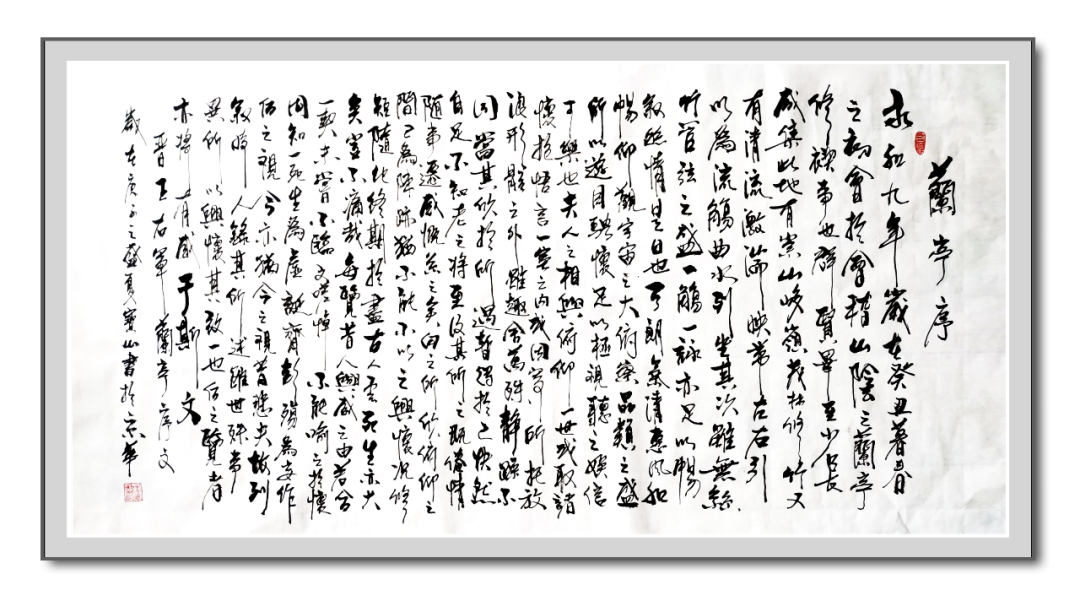 蘭亭序
永和九年歲在癸丑暮春
之初會於會稽山陰之蘭亭
修禊事也群賢畢至少長
咸集此地有崇山峻嶺茂林修竹又
有清流激湍映帶左右引
以為流觴曲水列坐其次雖無絲
竹管弦之盛一觴一詠亦足以暢
敘幽情是日也天朗氣清惠風和
暢仰觀宇宙之大俯察品類之盛
所以遊目騁懷足以極視聽之娛信
可樂也夫人之相與俯仰一世或取諸
懷抱悟言一室之內或因寄所託放
浪形骸之外雖趣舍萬殊靜躁不
同當其欣於所遇暫得於己快然
自足不知老之將至及其所之既倦情
隨事遷感慨系之矣向之所欣俯仰之
間已為陳跡猶不能不以之興懷況修
短隨化終期於盡古人云死生亦大
矣豈不痛哉每覽昔人興感之由若合
一契未嘗不臨文嗟悼不能喻之於懷
固知一死生為虛誕齊彭殤為妄作
後之視今亦猶今之視昔悲夫故列
敘時人錄其所述雖世殊事
異所以興懷其致一也後之覽者
亦將有感于斯文
晉王右軍蘭亭序文
歲在庚子之夏寶山書於京華